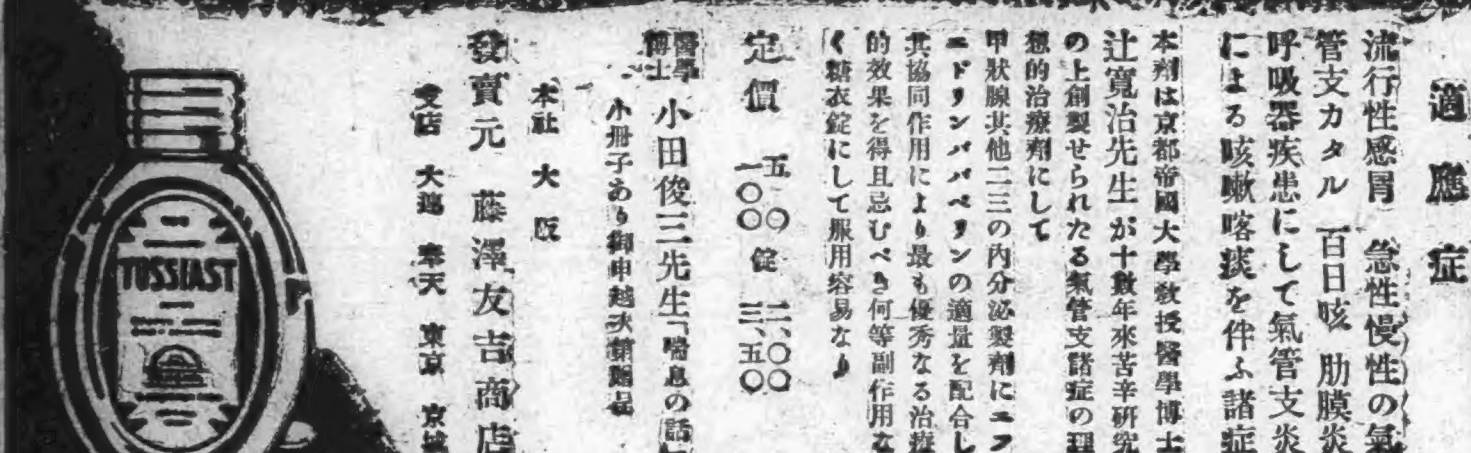 適應症
流行性感冒 急性慢性の氣
管支カタル 百日咳 肋膜炎
呼吸器疾患にして氣管支炎
による咳嗽喀痰を伴ふ諸症
本劑は京都帝國大學敎授醫學博士
辻寬治先生が十數年來苦辛硏究
の上創製せられたる氣管支諸症の理
想的治療劑にして
甲狀腺其他二三の內分泌製劑にエフ
エドリンパパベリンの適量を配合し
其協同作用により最も優秀なる治療
的效果を得且忌むべき何等副作用な
く糖衣錠にして服用容易なり
定價 五〇錠 二、〇〇
一〇〇 三、五〇
醫學博士 小田俊三先生「喘息の話」
小冊子あり御申越次第贈呈
本社 大阪
發賣元 藤澤友吉商店
支店 大連 奉天 東京 京城
TUSSIAST